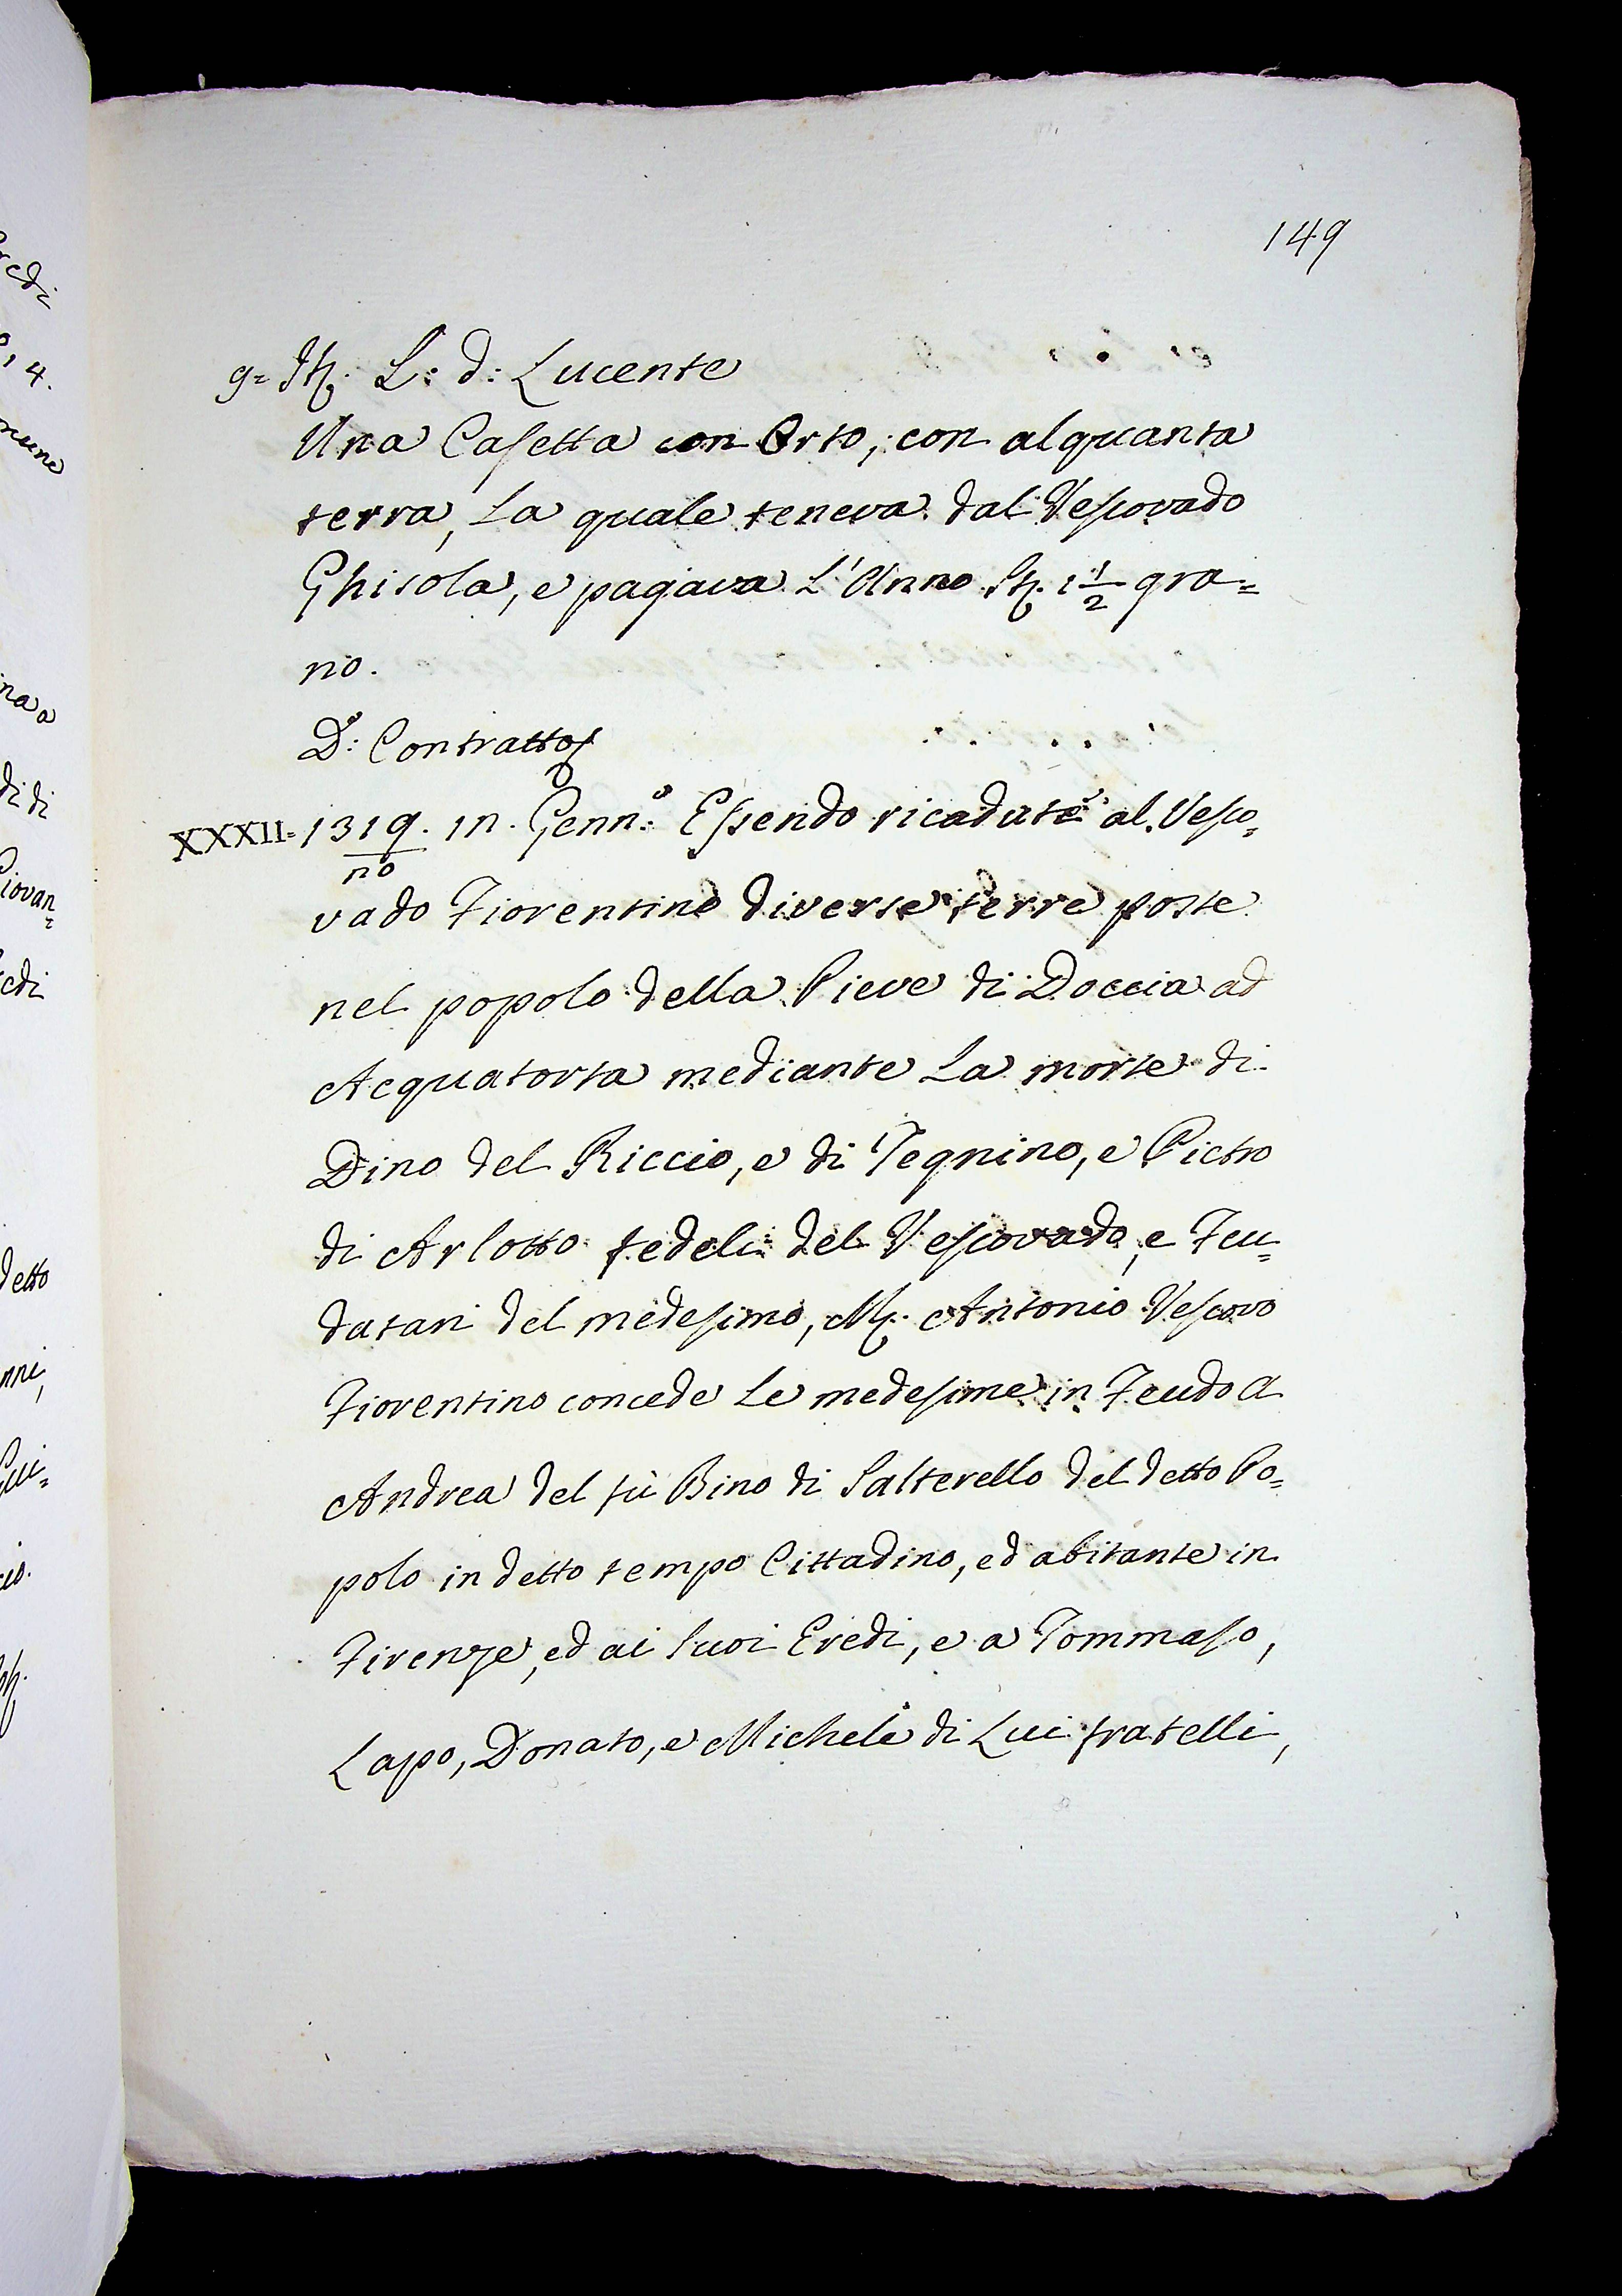 149
9= It. L: d: Lucente
Una Casetta con Orto, con alquanta
terra, La quale teneva dal Vescovado
Ghisola, e pagava L'Anno St. 1 1/2 gra=
no.
D:º Contratto
XXXII= 1319. in. Genn:º Essendo ricadute al Vesco=
no
vado Fiorentino diverse terre poste
nel popolo della Pieve di Doccia ad
Acquatorta mediante La morte di
Dino del Riccio, e di Tegnino, e Pietro
di Arlotto fedeli del Vescovado, e Feu=
datari del medesimo, M. Antonio Vescovo
Fiorentino concede Le medesime in Feudo a
Andrea del fù Bino di Salterello del detto Po=
polo in detto tempo Cittadino, ed abitante in
Firenze, ed ai suoi Eredi, e a Tommaso,
Lapo, Donato, e Michele di Lui fratelli,